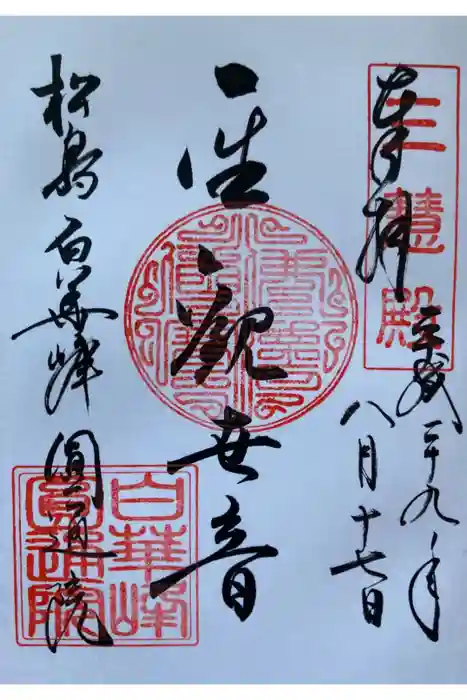 奉拝
三慧殿
平成二十九年
八月十七日
聖観世音
松島 白華峰 圓通院
白華峰
圓通院